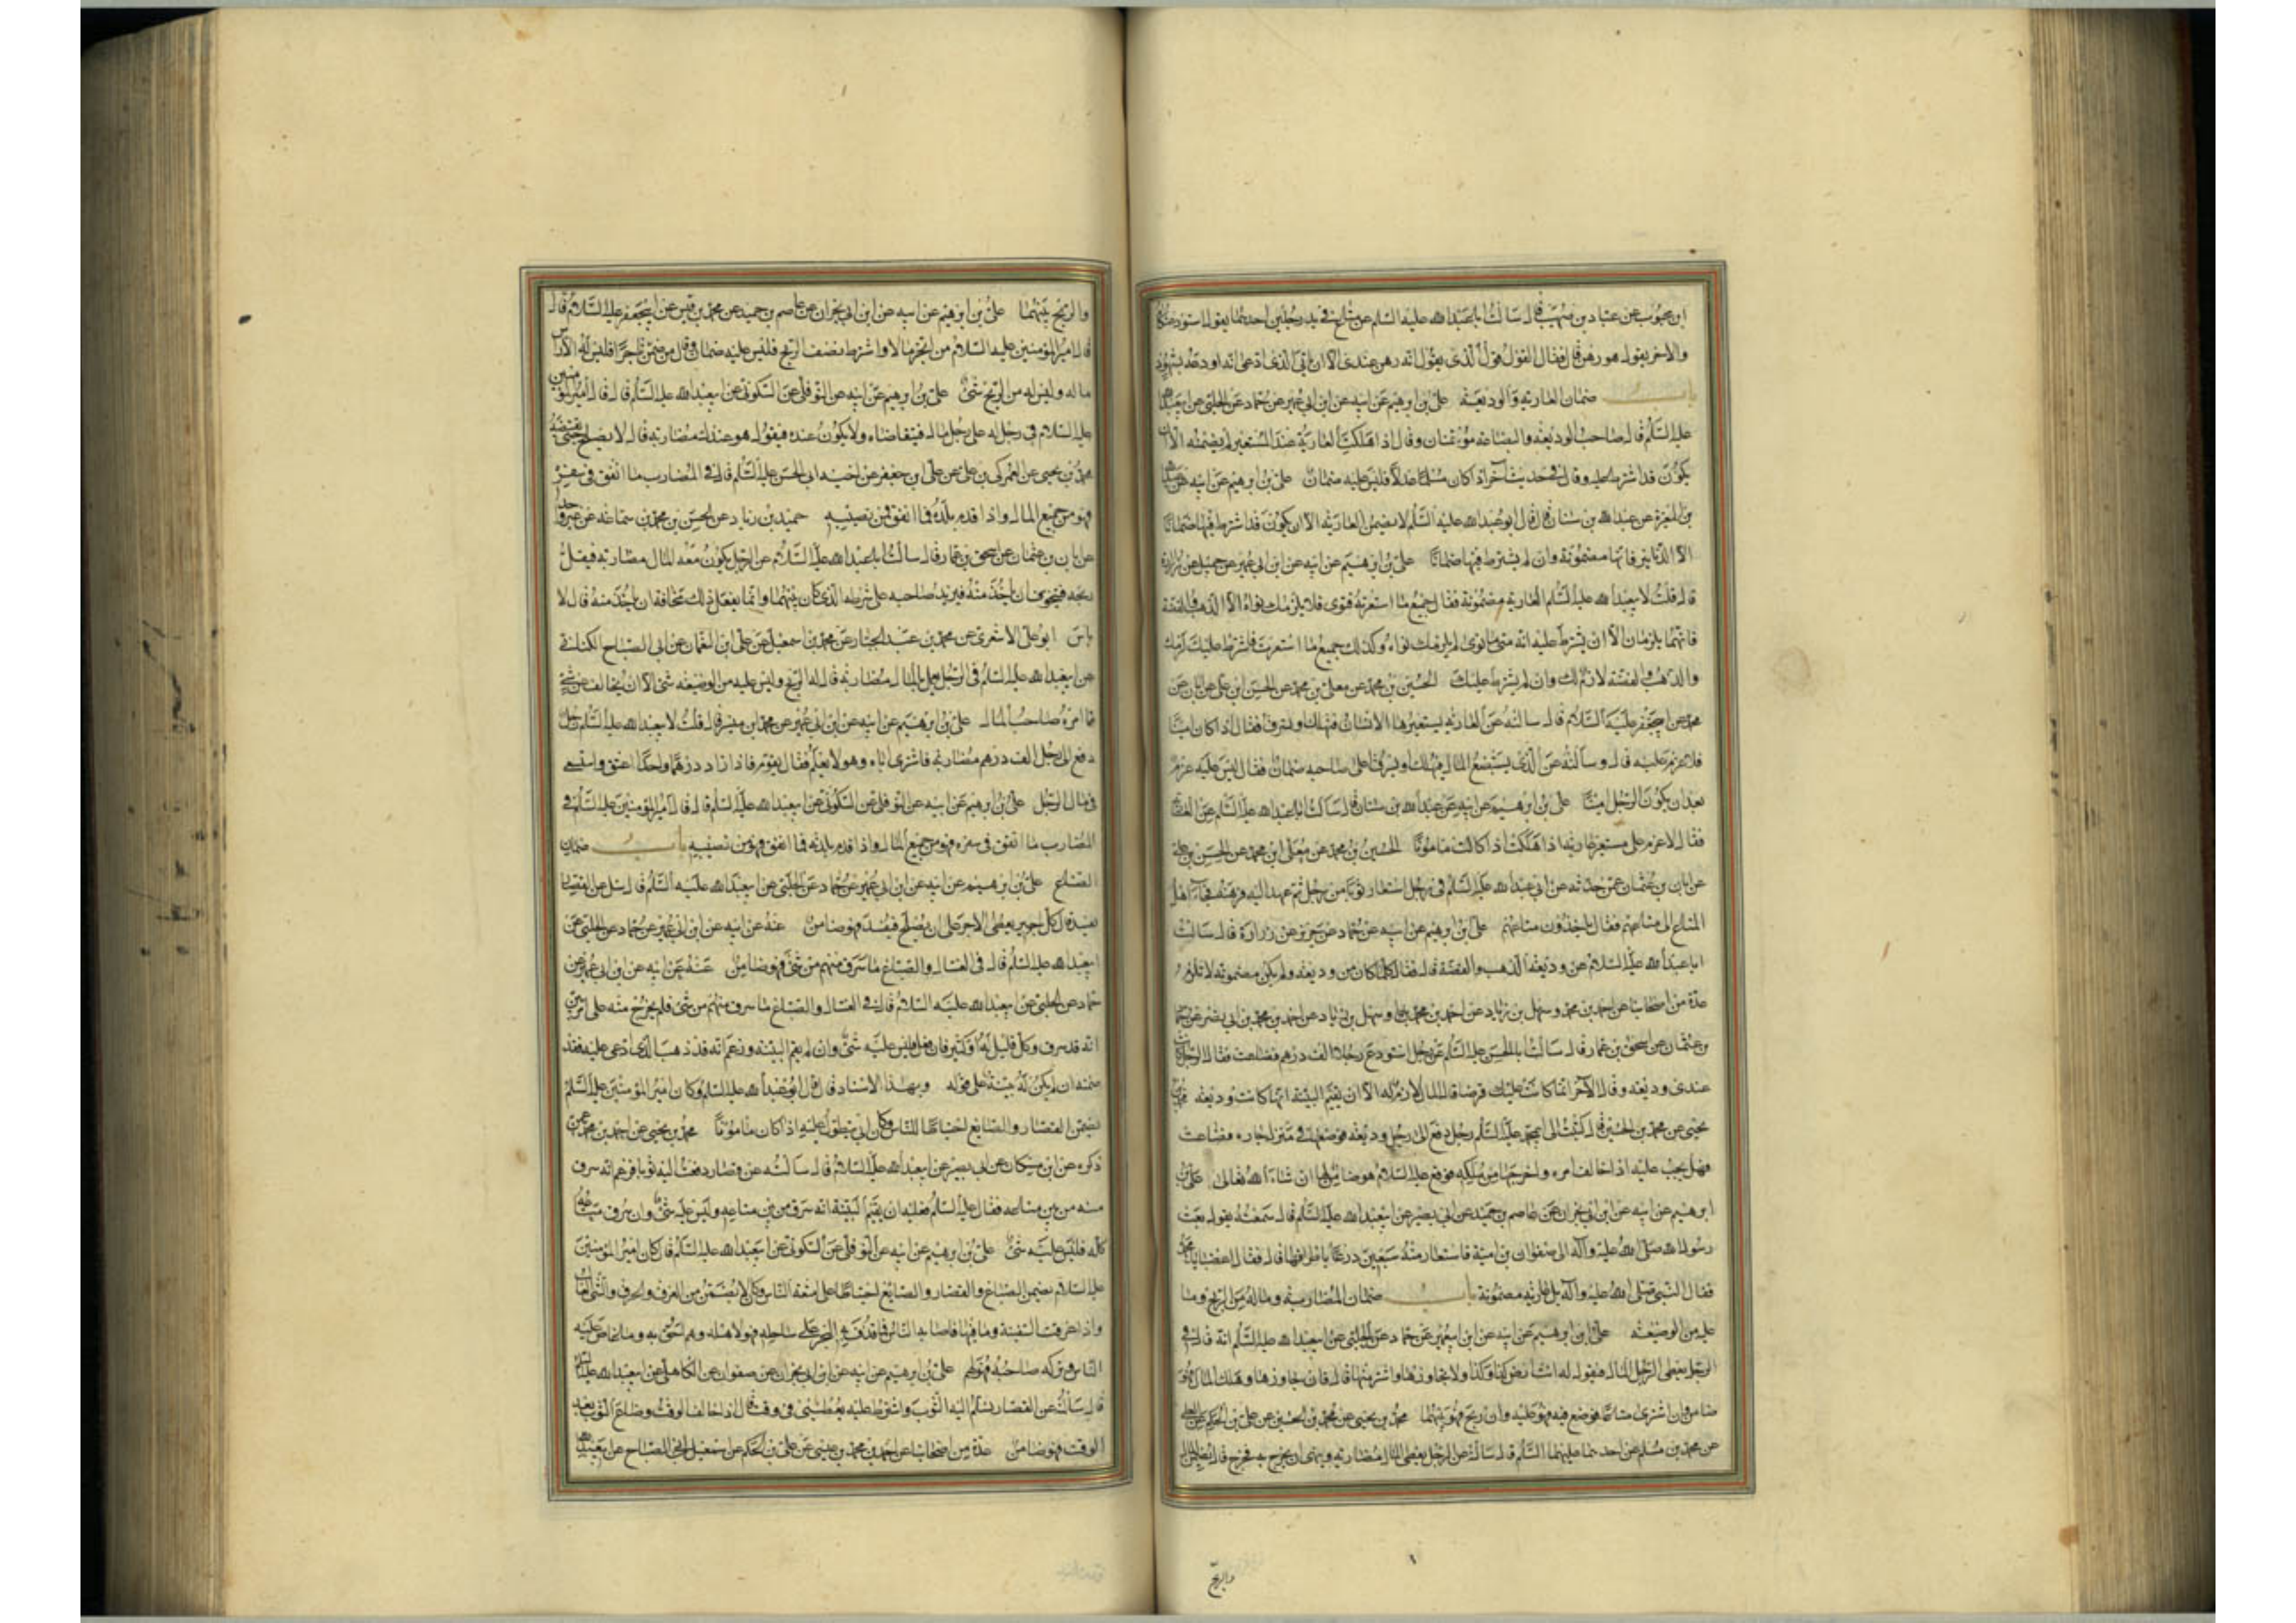 ابن محبوب عن عباد بن صهيب قال سالت ابا عبدالله عليه السلم عن متاع في يد رجلين احدهما يقول استودعتكاه
والاخر يقول هو رهن قال فقال القول قول الذي يقول انه رهن عندي الا ان ياتي الذي ادعى انه اودعه بشهود
باب ضمان العارية والوديعة علي بن ابرهيم عن ابيه عن ابن ابي عمير عن حماد عن الحلبي عن ابيعبدالله
عليه السلم قال صاحب الوديعة والبضاعة مؤتمنان وقال اذا هلكت العارية عند المستعير لم يضمنه الا ان
يكون قد اشترط عليه وقال في حديث آخر اذا كان مسلما عدلا فليس عليه ضمان علي بن ابرهيم عن ابيه عن عبدالله
بن المغيرة عن عبدالله بن سنان قال قال ابو عبدالله عليه السلم لا يضمن العارية الا ان يكون قد اشترط فيها ضمانا
الا الدنانير فانها مضمونة وان لم يشترط فيها ضمانا علي بن ابرهيم عن ابيه عن ابن ابي عمير عن جميل عن زرارة
قال قلت لابيعبدالله عليه السلم العارية مضمونة فقال جميع ما استعرته فتوى فلا يلزمك تواه الا الذهب والفضة
فانهما يلزمان الا ان يشترط عليه انه متى ما توى لم يلزمك تواه وكذلك جميع ما استعرت فاشترط عليك لزمك
والذهب والفضة لازم لك وان لم يشترط عليك الحسين بن محمد عن معلى بن محمد عن الحسن ابن علي عن ابان عن
محمد عن ابيجعفر عليه السلام قال سالته عن العارية يستعيرها الانسان فتهلك او تسرق فقال اذا كان امينا
فلا غرم عليه قال وسالته عن الذي يستبضع المال فيهلك او يسرق اعلى صاحبه ضمان فقال ليس عليه غرم
بعد ان يكون الرجل امينا علي بن ابرهيم عن ابيه عن عبدالله بن سنان قال سالت ابا عبدالله عليه السلم عن العارية
فقال لا غرم على مستعير عارية اذا هلكت اذا كانت مامونا الحسين بن محمد عن معلى ابن محمد عن الحسن بن علي
عن ابان بن عثمان عمن حدثه عن ابي عبدالله عليه السلم في رجل استعار ثوبا من رجل ثم عمد اليه فرهنه فجاء اهل
المتاع الى متاعهم فقال ياخذون متاعهم علي بن ابرهيم عن ابيه عن حماد عن حريز عن زرارة قال سالت
ابا عبدالله عليه السلام عن وديعة الذهب والفضة قال فقال كلما كان من وديعة ولم يكن مضمونة لا تلزم
عدة من اصحابنا عن احمد بن محمد وسهل بن زياد عن احمد بن محمد بن ابي نصر عن حماد
بن عثمان عن اسحق بن عمار قال سالت ابا الحسن عليه السلم عن رجل استودع رجلا الف درهم فضاعت فقال الرجل كانت
عندي وديعة وقال الآخر انما كانت عليك قرضا قال المال لازم له الا ان يقيم البينة انها كانت وديعة محمد بن
يحيى عن محمد بن الحسين قال كتبت الى ابيمحمد عليه السلم رجل دفع الى رجل وديعة فوضعها في منزل جاره فضاعت
فهل يجب عليه اذا خالف امره واخرجها من ملكه فوقع عليه السلام هو ضامن لها ان شاء الله تعالى علي بن
ابرهيم عن ابيه عن ابن ابي نجران عن عاصم بن حميد عن ابي بصير عن ابيعبدالله عليه السلم قال سمعته يقول بعث
رسول الله صلى الله عليه وآله الى صفوان بن امية فاستعار منه سبعين درعا باطراقها قال فقال اغصبا يا محمد
فقال النبي صلى الله عليه وآله بل عارية مضمونة باب ضمان المضاربة وماله من الربح وما
عليه من الوضيعة علي ابن ابرهيم عن ابيه عن ابن ابيعمير عن حماد عن الحلبي عن ابيعبدالله عليه السلم انه قال في
الرجل يعطي الرجل المال فيقول له ائت ارض كذا وكذا ولا تجاوزها واشتر منها قال فان جاوزها وهلك المال فهو
ضامن وان اشترى متاعا فوضع فيه فهو عليه وان ربح فهو بينهما محمد بن يحيى عن محمد بن الحسين عن علي بن الحكم عن العلاء
عن محمد بن مسلم عن احدهما عليهما السلم قال سالته عن الرجل يعطي المال مضاربة وينهى ان يخرج به فخرج قال يضمن المال
والربح
والربح بينهما علي بن ابرهيم عن ابيه عن ابن ابي نجران عن عاصم بن حميد عن محمد بن قيس عن ابيجعفر عليه السلام قال
قال امير المؤمنين عليه السلام من اتجر مالا واشترط نصف الربح فليس عليه ضمان وقال من ضمن تاجرا فليس له الا راس
ماله وليس له من الربح شئ علي بن ابرهيم عن ابيه عن النوفلي عن السكوني عن ابيعبدالله عليه السلم قال قال امير المؤمنين
عليه السلام في رجل له على رجل مال فيتقاضاه ولا يكون عنده فيقول هو عندك مضاربة قال لا يصلح حتى يقبضه
محمد بن يحيى عن العمركي بن علي عن علي ابن جعفر عن اخيه ابي الحسن عليه السلم قال في المضارب ما انفق في سفره
فهو من جميع المال واذا قدم بلده فما انفق فمن نصيبه حميد بن زياد عن الحسن بن محمد بن سماعة عن غير واحد
عن ابان بن عثمان عن اسحق بن عمار قال سالت ابا عبدالله عليه السلام عن الرجل يكون معه المال مضاربة فيقل
ربحه فيتخوف ان ياخذ منه فيزيد صاحبه على شرطه الذي كان بينهما وانما يفعل ذلك مخافة ان ياخذ منه قال لا
باس ابو علي الاشعري عن محمد بن عبد الجبار عن محمد بن اسمعيل عن علي ابن النعمان عن ابي الصباح الكناني
عن ابيعبدالله عليه السلم في الرجل يعمل بالمال مضاربة قال له الربح وليس عليه من الوضيعة شئ الا ان يخالف عن شئ
مما امره صاحب المال علي بن ابرهيم عن ابيه عن ابن ابي عمير عن محمد ابن ميسر قال قلت لابيعبدالله عليه السلم رجل
دفع الى رجل الف درهم مضاربة فاشترى اباه وهو لا يعلم فقال يقوم فاذا زاد درهما واحدا اعتق واستسعي
في مال الرجل علي بن ابرهيم عن ابيه عن النوفلي عن السكوني عن ابيعبدالله عليه السلم قال قال امير المؤمنين عليه السلم في
المضارب ما انفق في سفره فهو من جميع المال واذا قدم بلدته فما انفق فهو من نصيبه باب ضمان
الصناع علي بن ابرهيم عن ابيه عن ابن ابي عمير عن حماد عن الحلبي عن ابيعبدالله عليه السلم قال سئل عن القصار
يفسد قال كل اجير يعطى الاجر على ان يصلح فيفسد فهو ضامن عنه عن ابيه عن ابن ابي عمير عن حماد عن الحلبي عن
ابيعبدالله عليه السلم قال في الغسال والصباغ ما سرق منهم من شئ فهو ضامن عنه عن ابيه عن ابن ابي عمير عن
حماد عن الحلبي عن ابيعبدالله عليه السلام قال في الغسال والصباغ ما سرق منهم من شئ فلم يخرج منه على امر بين
انه قد سرق وكل قليل له او كثير فان فعل فليس عليه شئ وان لم يقم البينة وزعم انه قد ذهب الذي ادعى عليه فقد
ضمنه ان لم يكن له بينة على قوله وبهذا الاسناد قال قال ابو عبدالله عليه السلم وكان امير المؤمنين عليه السلم
يضمن القصار والصايغ احتياطا للناس وكان ابي يتطول عليه اذا كان مامونا محمد بن يحيى عن احمد بن محمد عمن
ذكره عن ابن مسكان عن ابي بصير عن ابيعبدالله عليه السلام قال سالته عن قصار دفعت اليه ثوبا فزعم انه سرق
منه من بين متاعه فقال عليه السلم فعليه ان يقيم البينة انه سرق من بين متاعه وليس عليه شئ وان سرق متاعه
كله فليس عليه شئ علي بن ابرهيم عن ابيه عن النوفلي عن السكوني عن ابيعبدالله عليه السلم قال كان امير المؤمنين
عليه السلام يضمن الصباغ والقصار والصايغ احتياطا على امتعة الناس وكان لا يضمن من الغرق والحرق والشئ الغالب
واذا غرقت السفينة وما فيها فاصابه الناس فما قذف به البحر على ساحله فهو لاهله وهم احق به وما غاص عليه
الناس وتركه صاحبه فهو لهم علي بن ابرهيم عن ابيه عن ابن ابي نجران عن صفوان عن الكاهلي عن ابيعبدالله عليه السلم
قال سالته عن القصار يسلم اليه الثوب واشترط عليه يعطيني في وقت قال اذا خالف الوقت وضاع الثوب بعد
الوقت فهو ضامن عدة من اصحابنا عن احمد بن محمد بن عيسى عن علي بن الحكم عن اسمعيل ابن ابي الصباح عن ابيعبدالله